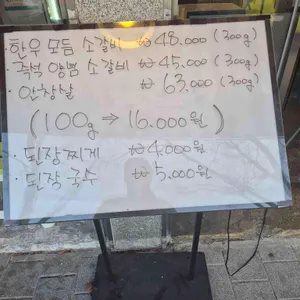 한우 모듬 소갈비 ₩48.000 (300g)
· 특벽 양뼘 소갈비 ₩45.000 (300g)
· 안창살 ₩63.000 (300g)
(100g ⇒ 16.000원)
· 된장찌게 ₩4.000원
· 된장 국수 ₩5.000원